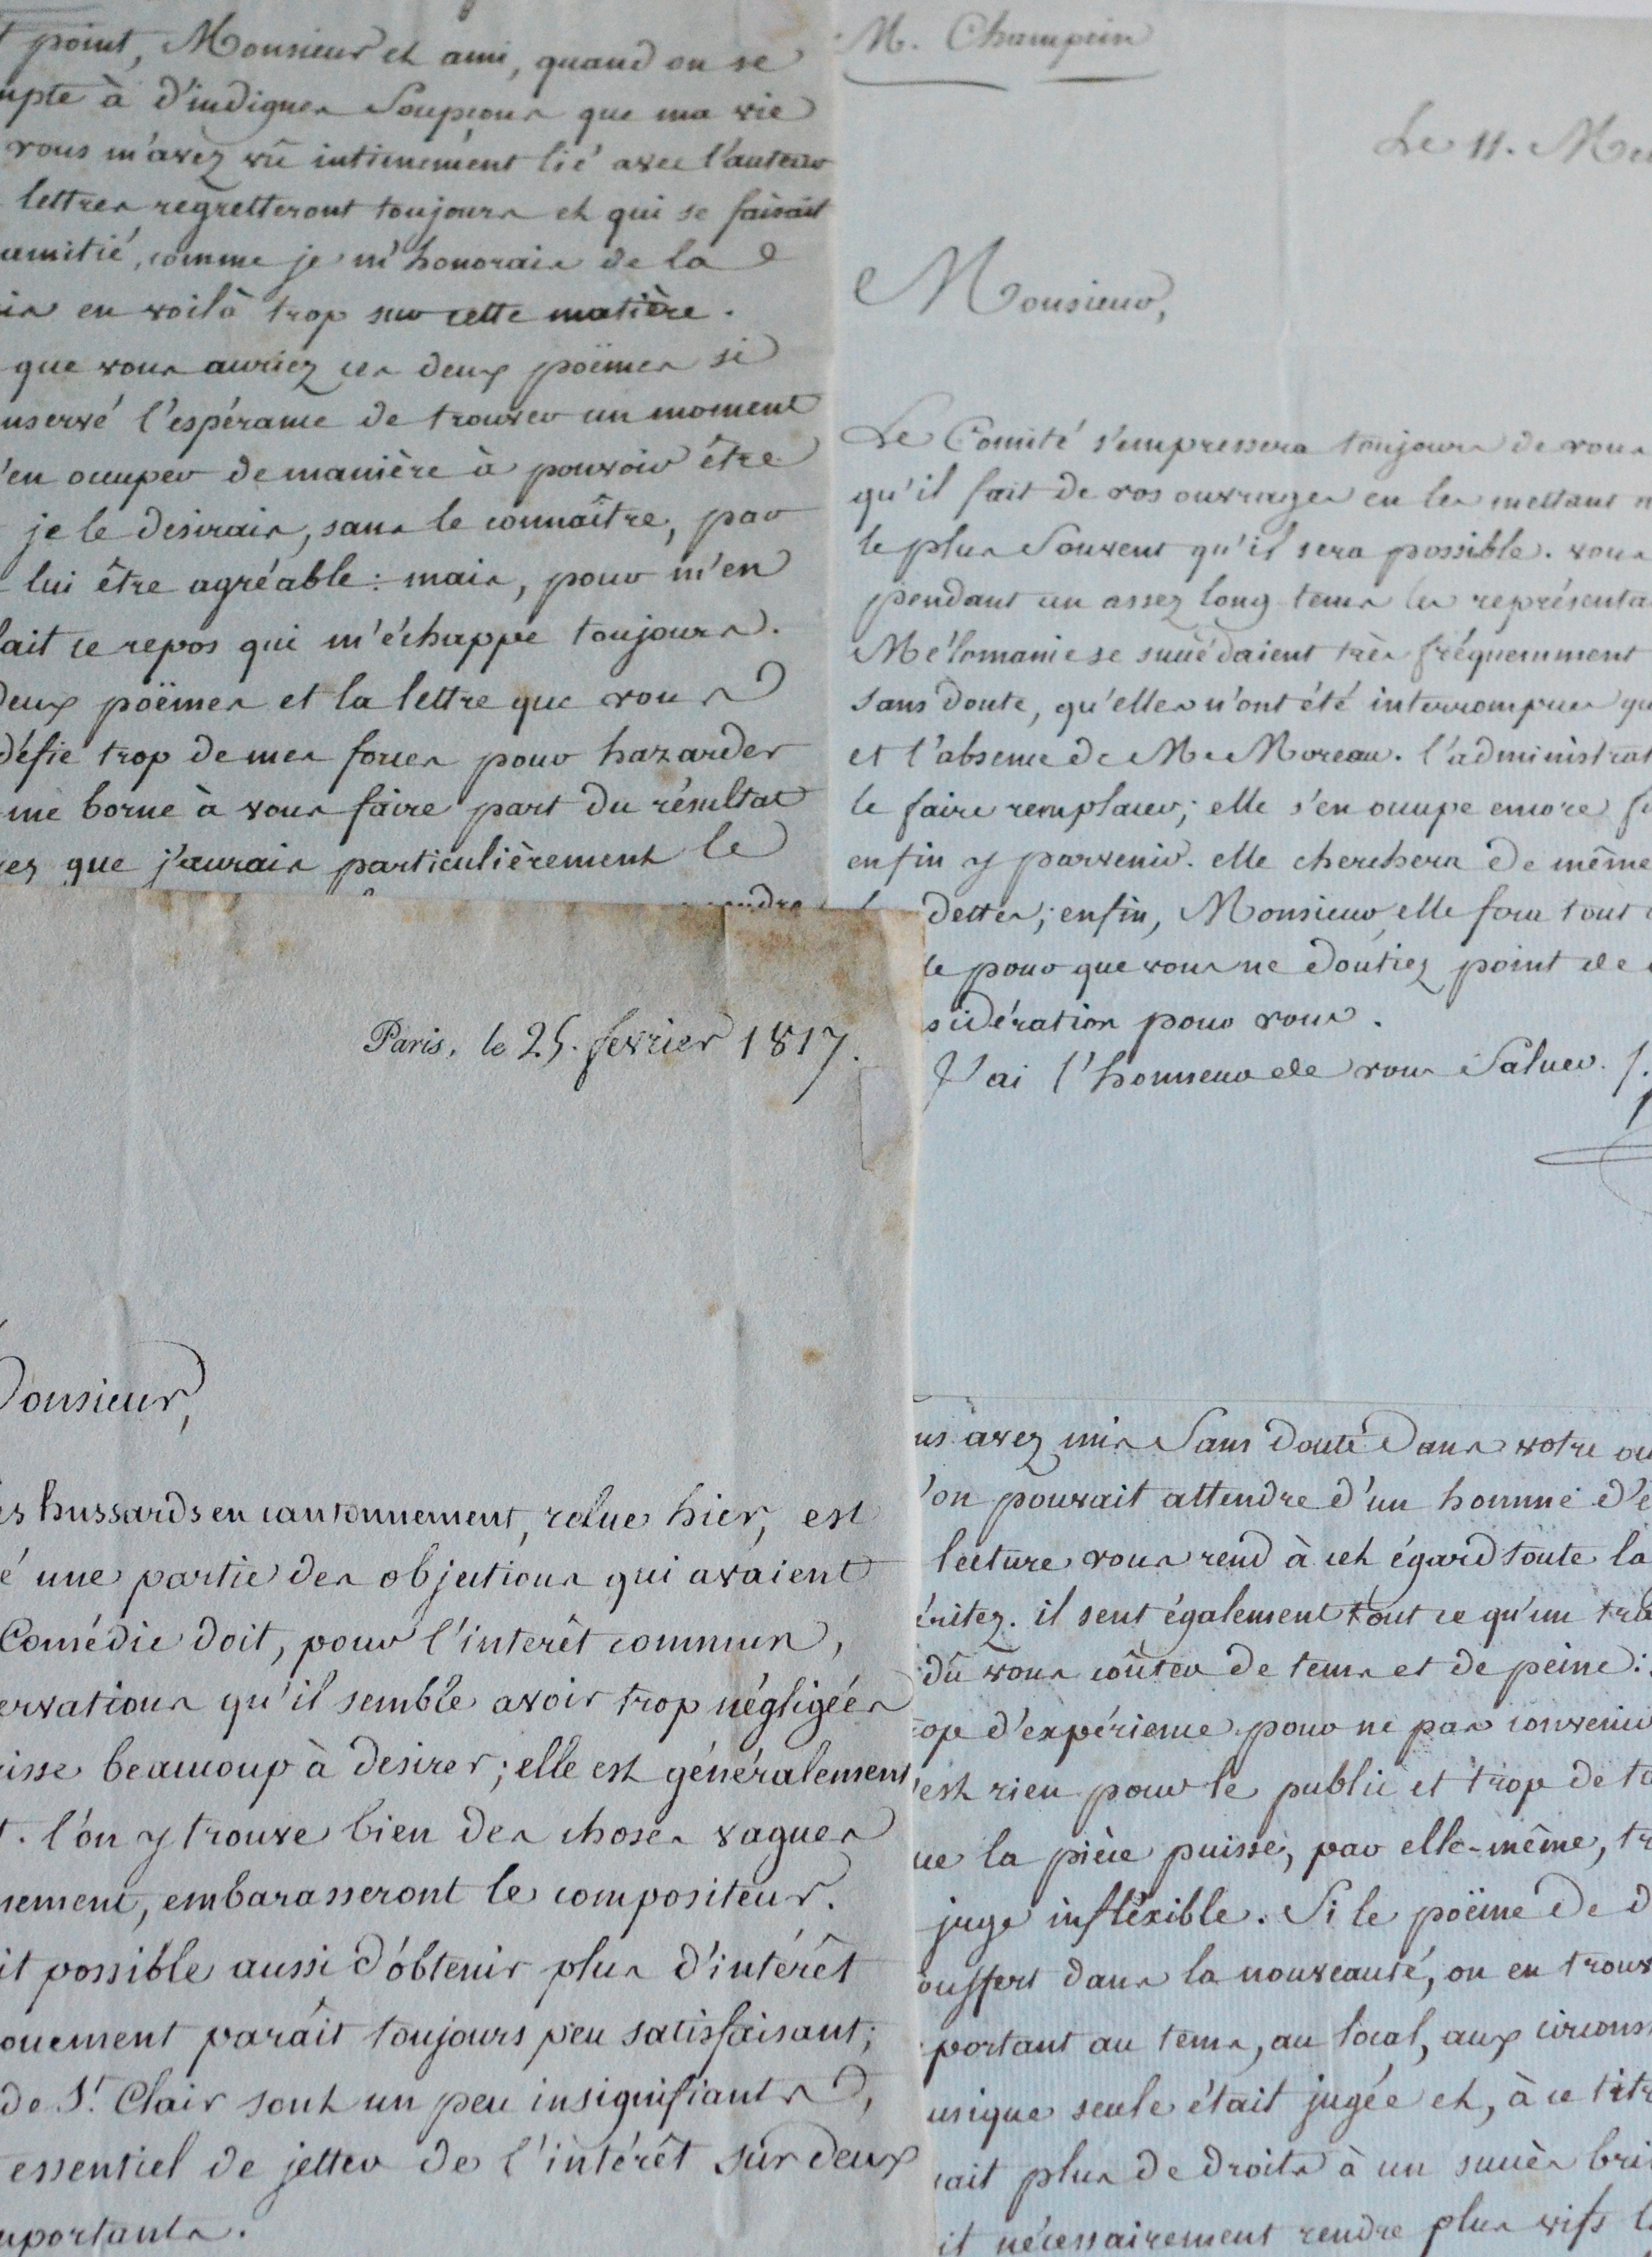 point, Monsieur et ami, quand on se
à d'indignes Soupçons que ma vie
vous m'avez vû intimement lié avec l'auteur
lettres regretteront toujours et qui se faisait
amitié, comme je m'honorais de la
en voilà trop sur cette matière.
que vous auriez ces deux poëmes si
nservé l'espérance de trouver un moment
'en occuper de manière à pouvoir être
je le desirais, sans le connaître, par
lui être agréable: mais, pour m'en
lait ce repos qui m'échappe toujours.
deux poëmes et la lettre que vous
défie trop de mes forces pour hazarder
me borne à vous faire part du résultat
que j'aurais particulièrement le
M. Champein
Le 11. Me
Monsieur,
Le Comité s'empressera toujours de vous
qu'il fait de vos ouvrages en les mettant
le plus Souvent qu'il sera possible. vous
pendant un assez long tems les représenta
Mélomanie se succédaient très fréquemment
sans doute, qu'elles n'ont été interrompues qu
et l'absence de M. Moreau. l'administrat
le faire remplacer; elle s'en occupe encore
enfin y parvenir. elle cherchera de même
dettes; enfin, Monsieur, elle fera tout
le pour que vous ne doutiez point de
sidération pour vous.
J'ai l'honneur de vous Saluer.
Paris, le 25. fevrier 1817.
Monsieur,
es hussards en cantonnement, relue hier, est
é une partie des objections qui avaient
Comédie doit, pour l'interêt commun,
ervations qu'il semble avoir trop négligées
isse beaucoup à desirer; elle est généralement
t. l'on y trouve bien des choses vagues
nement, embarasseront le compositeur.
it possible aussi d'obtenir plus d'intérêt
ouement parait toujours peu satisfaisant;
de St. Clair sont un peu insignifiants,
essentiel de jetter de l'intérêt sur deux
mportants.
us avez mis Sans doute Dans votre ou
l'on pouvait attendre d'un homme d'e
lecture vous rend à cet égard toute la
éritez. il sent également tout ce qu'un tra
dû vous coûter de tems et de peine:
rop d'expérience pour ne pas convenir
'est rien pour le public et trop de
ue la pièce puisse, par elle-même, tr
juge infléxible. Si le poëme de d
ouffert dans la nouveauté, on en trouv
portant au tems, au local, aux circons
usique seule était jugée et, à ce titr
ait plus de droits à un succès bri
it nécessairement rendre plus vifs